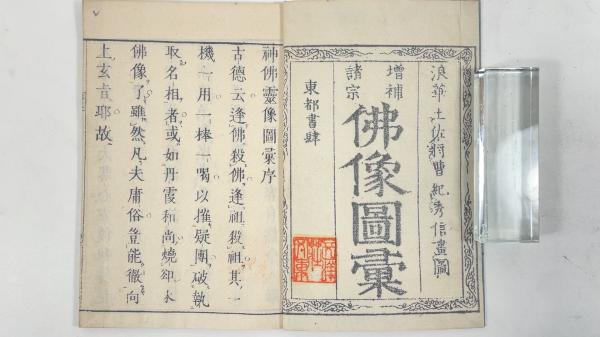 浪華土佐将曹紀秀信畫圖
增補
諸宗
佛像圖彙
東都書肆
神佛靈像圖彙序
古德云逢佛殺佛逢祖殺祖其一
機一用一捧一喝以摧疑團破執
取名相者或如丹霞和尚燒卻木
佛像了雖然凡夫庸俗豈能徹向
上玄旨耶故